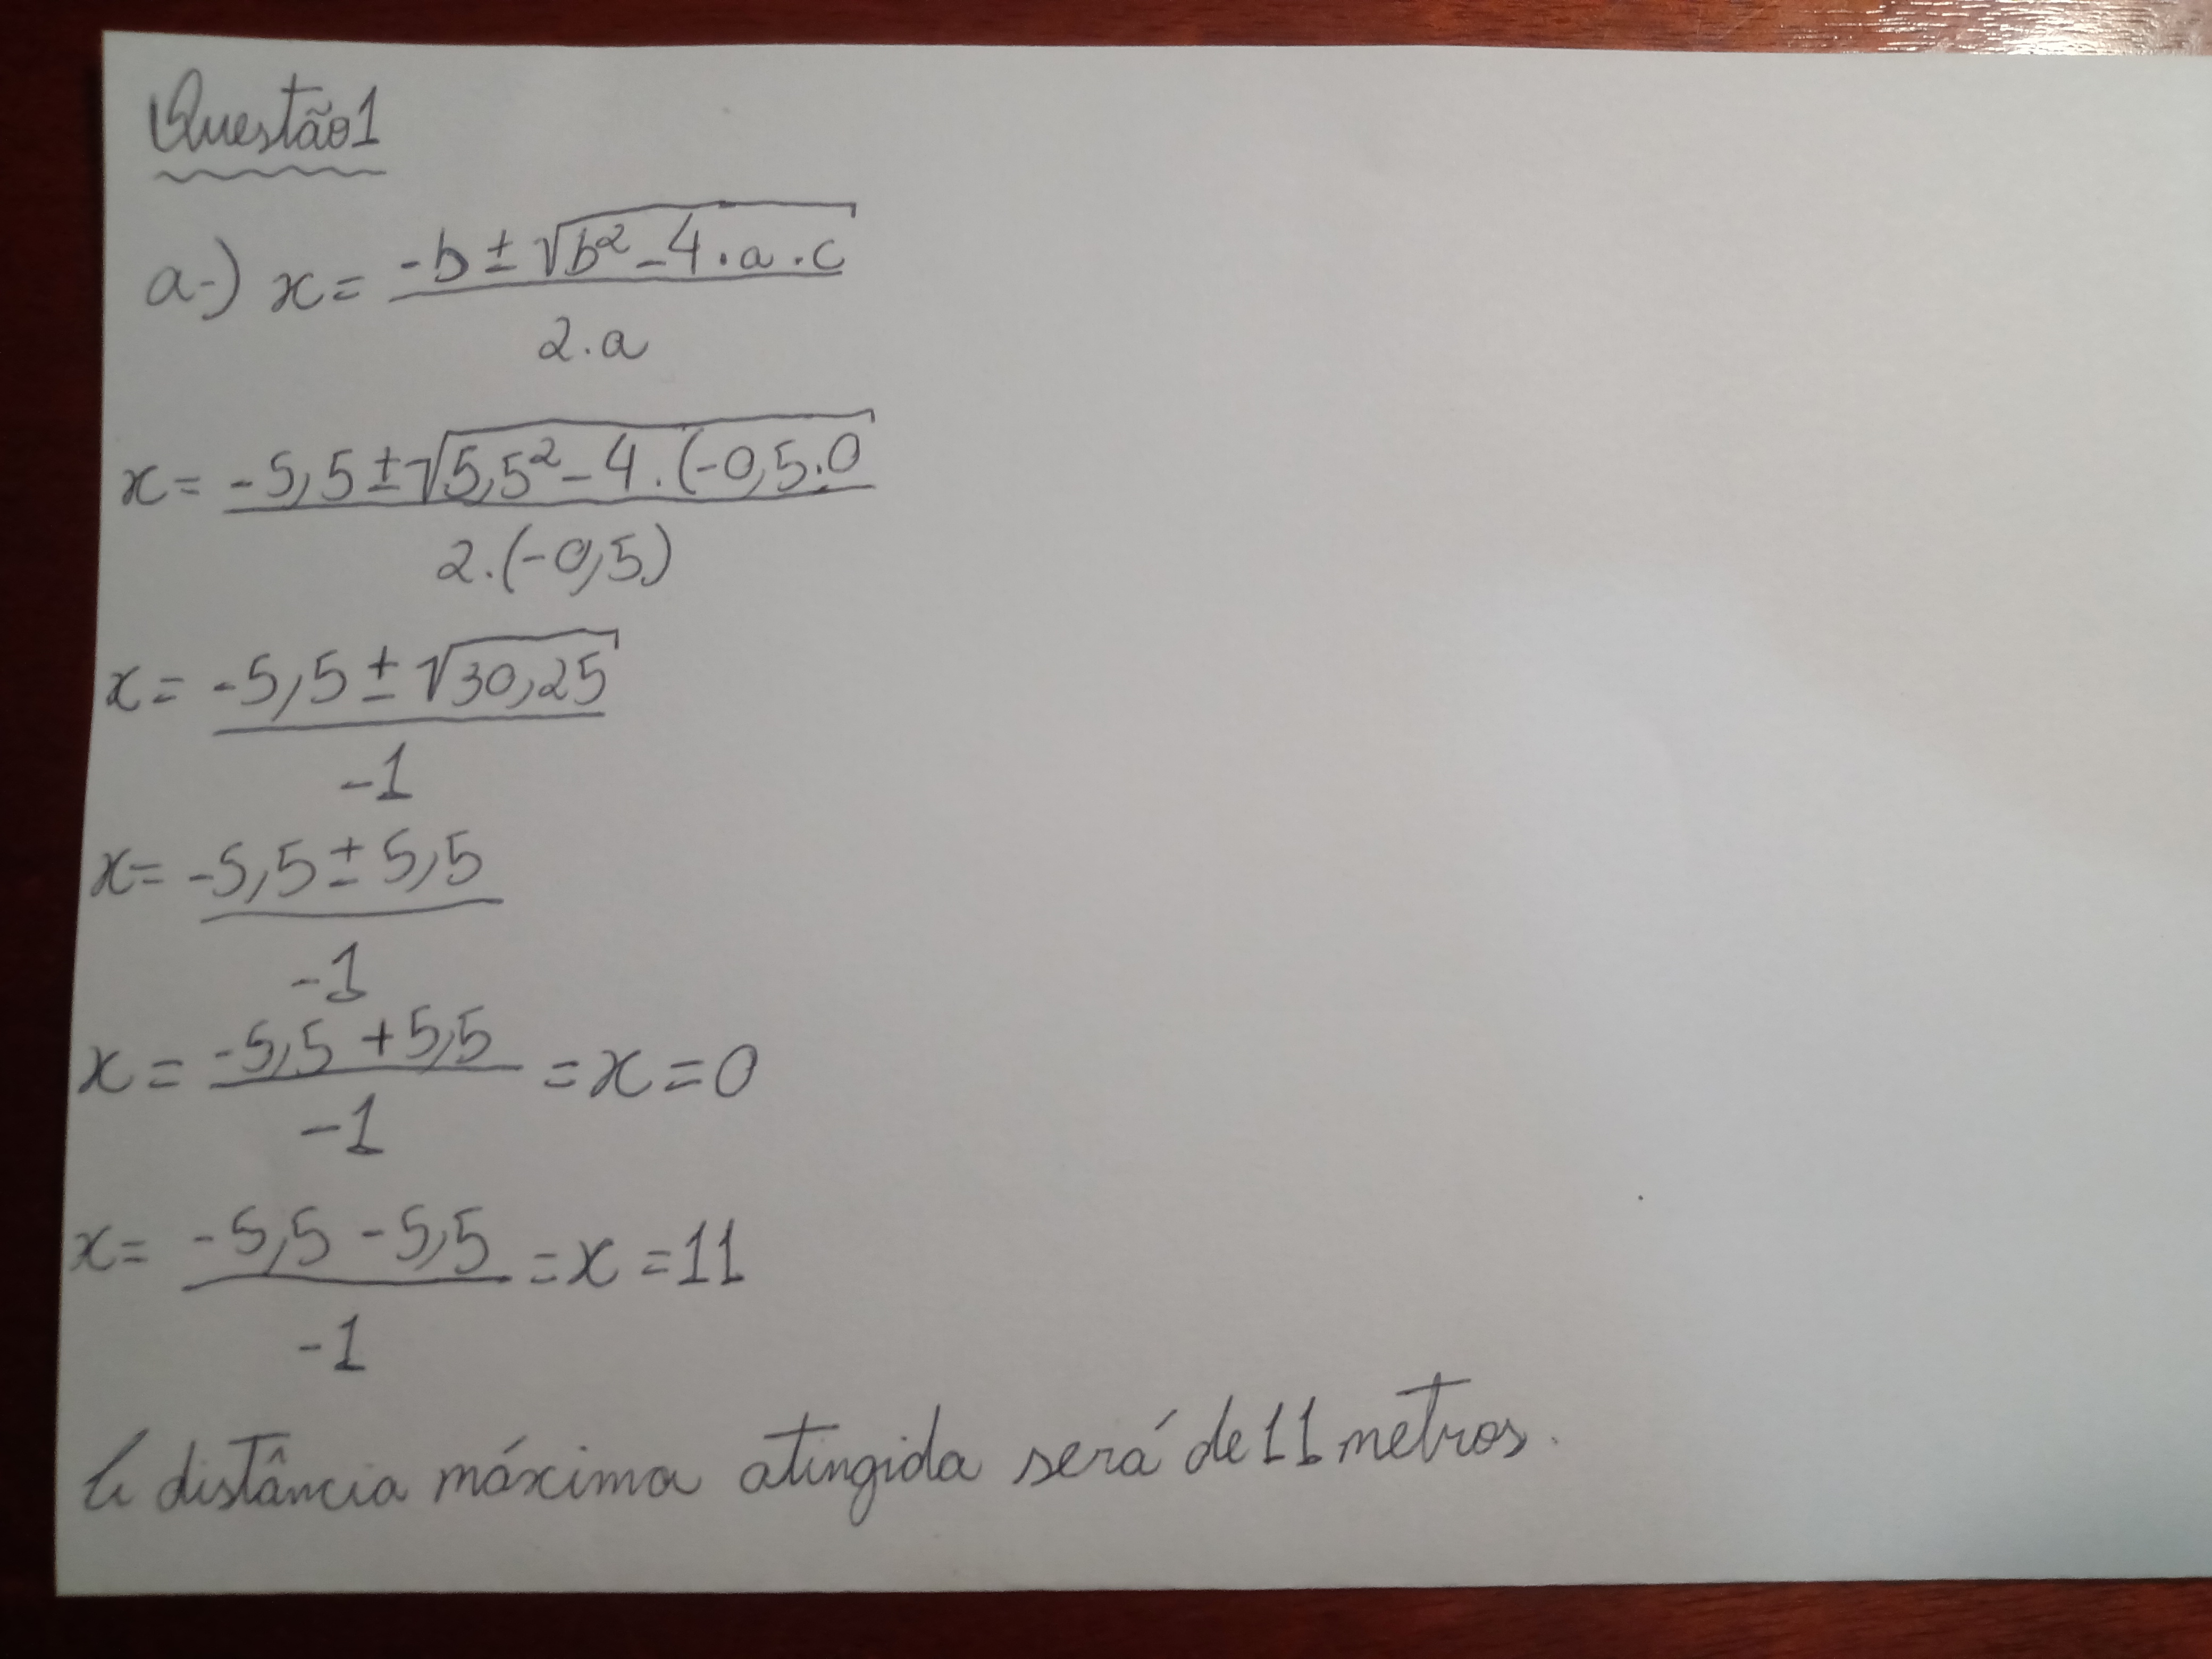 Questão1
a-) x = -b ± √b² - 4 . a . c
2 . a
x = -5,5 ± √5,5² - 4 . (-0,5 . 0
2 . (-0,5)
x = -5,5 ± √30,25
-1
x = -5,5 ± 5,5
-1
x = -5,5 + 5,5 = x = 0
-1
x = -5,5 - 5,5 = x = 11
-1
A distância máxima atingida será de 11 metros.